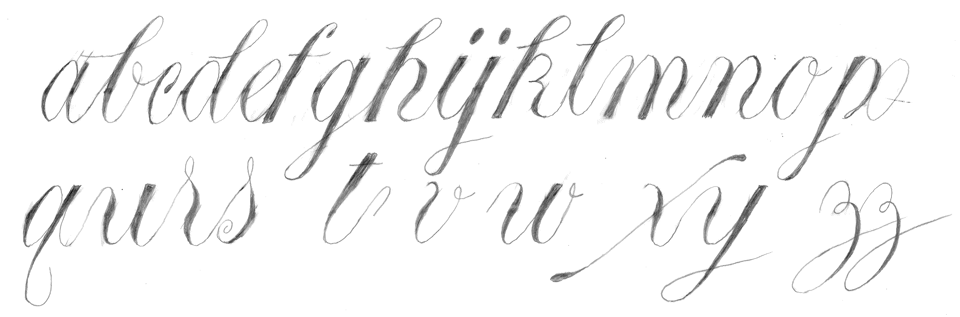 abcdefghijklmnop
qurs t v w xy zz